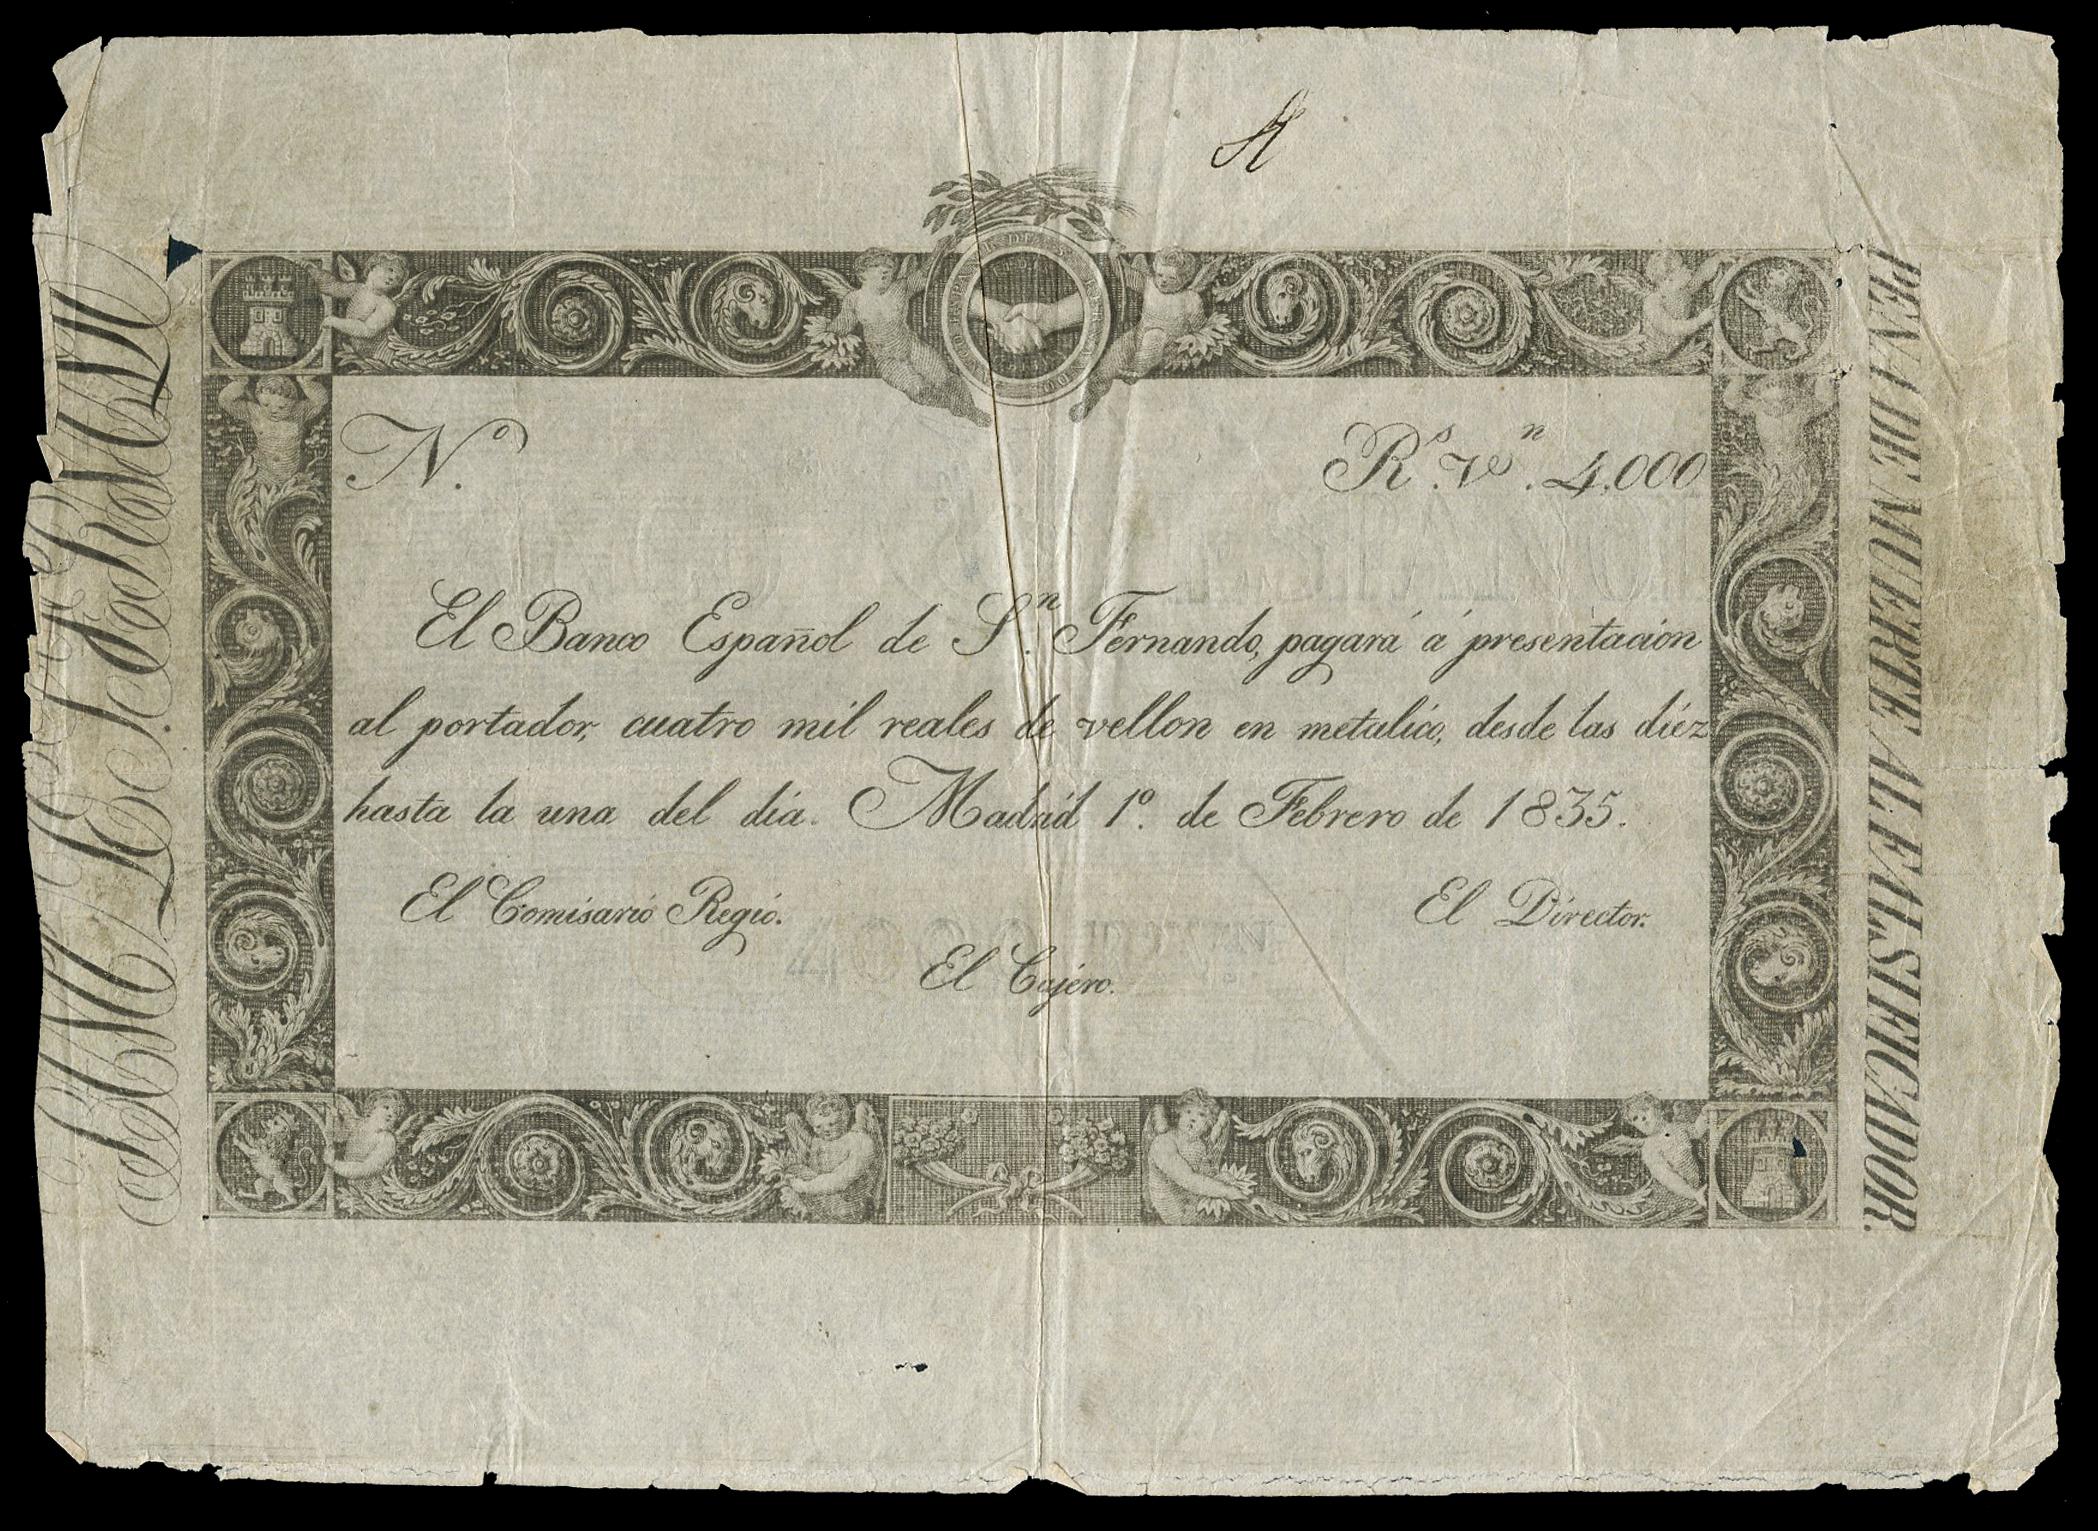 A
Nº.
Rˢ. Vⁿ. 4,000
El Banco Español de Sⁿ. Fernando, pagará á presentacion
al portador, cuatro mil reales de vellon en metalico, desde las diez
hasta la una del dia. Madrid 1º. de Febrero de 1835.
El Comisario Regio.
El Director.
El Cajero.
PENA DE MUERTE AL FALSIFICADOR.